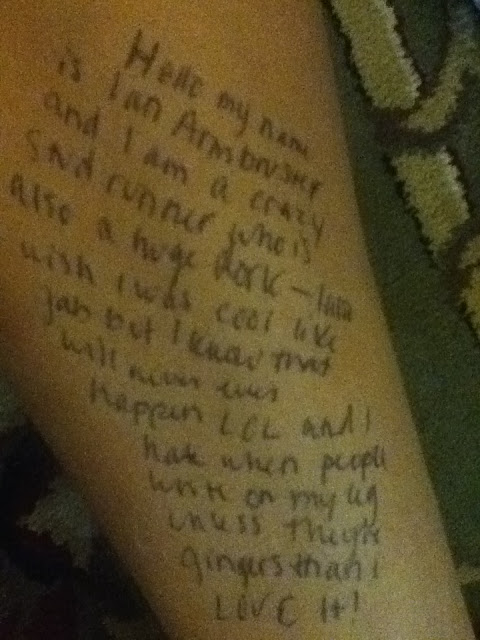 Hello my name
is Ian Armbruster
and I am a crazy
stud runner who is
also a huge dork - I
wish I was cool like
Jan but I know that
will never ever
happen LOL and I
hate when people
write on my leg
unless they're
gingers than I
LOVE It!